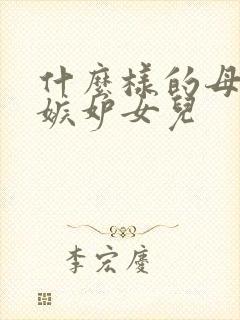 什麼樣的母
嫉妒女兒
李宏慶